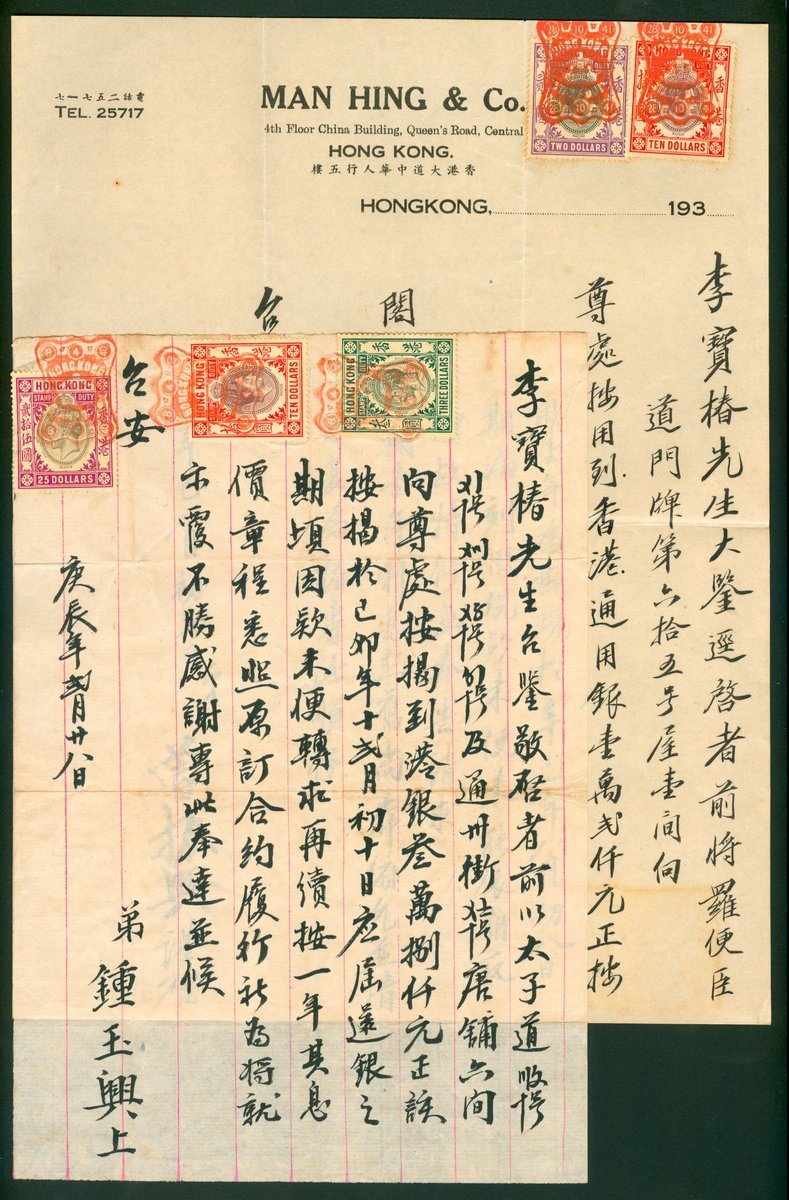 電話二五七一七
TEL. 25717
MAN HING & Co.
4th Floor China Building, Queen's Road, Central
HONG KONG.
香港大道中華人行五樓
HONGKONG, 193
28 10 41
TWO DOLLARS
28 10 41
香港
TEN DOLLARS
李寶椿先生大鑒逕啓者前將羅便臣
道門牌第六拾五号屋壹間向
尊處按用到香港通用銀壹萬弍仟元正按
閣
台
李寶椿先生台鑒敬啓者前以太子道
及通州街 唐舖六間
向尊處按揭到港銀叁萬捌仟元正該
按揭於己卯年十弍月初十日應屆還銀之
期頃因欵未便轉求再續按一年其息
價章程悉照原訂合約履行祈為將就
示覆不勝感謝專此奉達並候
台安
弟鍾玉興上
庚辰年弍月廿八日
HONG KONG
STAMP DUTY
香港
THREE DOLLARS
HONG KONG
STAMP DUTY
香港
TEN DOLLARS
HONG KONG
STAMP DUTY
香港
貳拾伍圓
25 DOLLARS